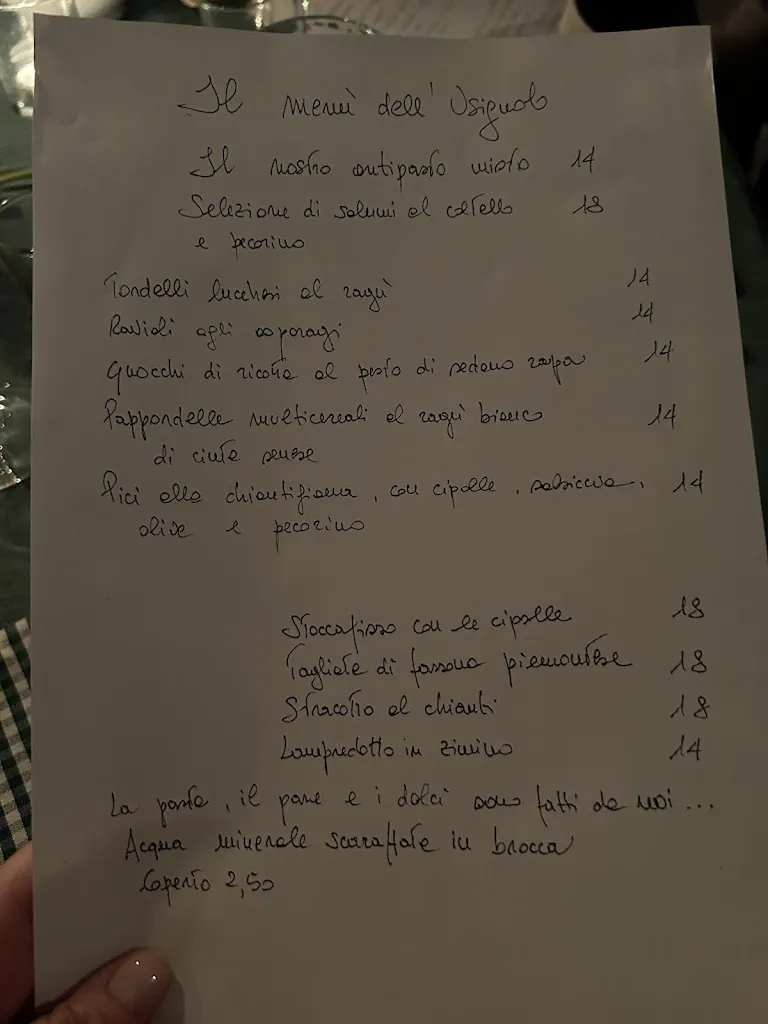 Il menù dell'Usignolo
Il nostro antipasto misto 14
Selezione di salumi al coltello 18
e pecorino
Tordelli lucchesi al ragù 14
Ravioli agli asparagi 14
Gnocchi di ricotta al pesto di sedano rapa 14
Pappardelle multicereali al ragù bianco 14
di cinta senese
Pici alla chiantigiana, con cipolle, salsiccia, 14
olive e pecorino
Stoccafisso con le cipolle 18
Tagliata di fassona piemontese 18
Stracotto al chianti 18
Lampredotto in zimino 14
La pasta, il pane e i dolci sono fatti da noi ...
Acqua minerale in brocca
Coperto 2,50